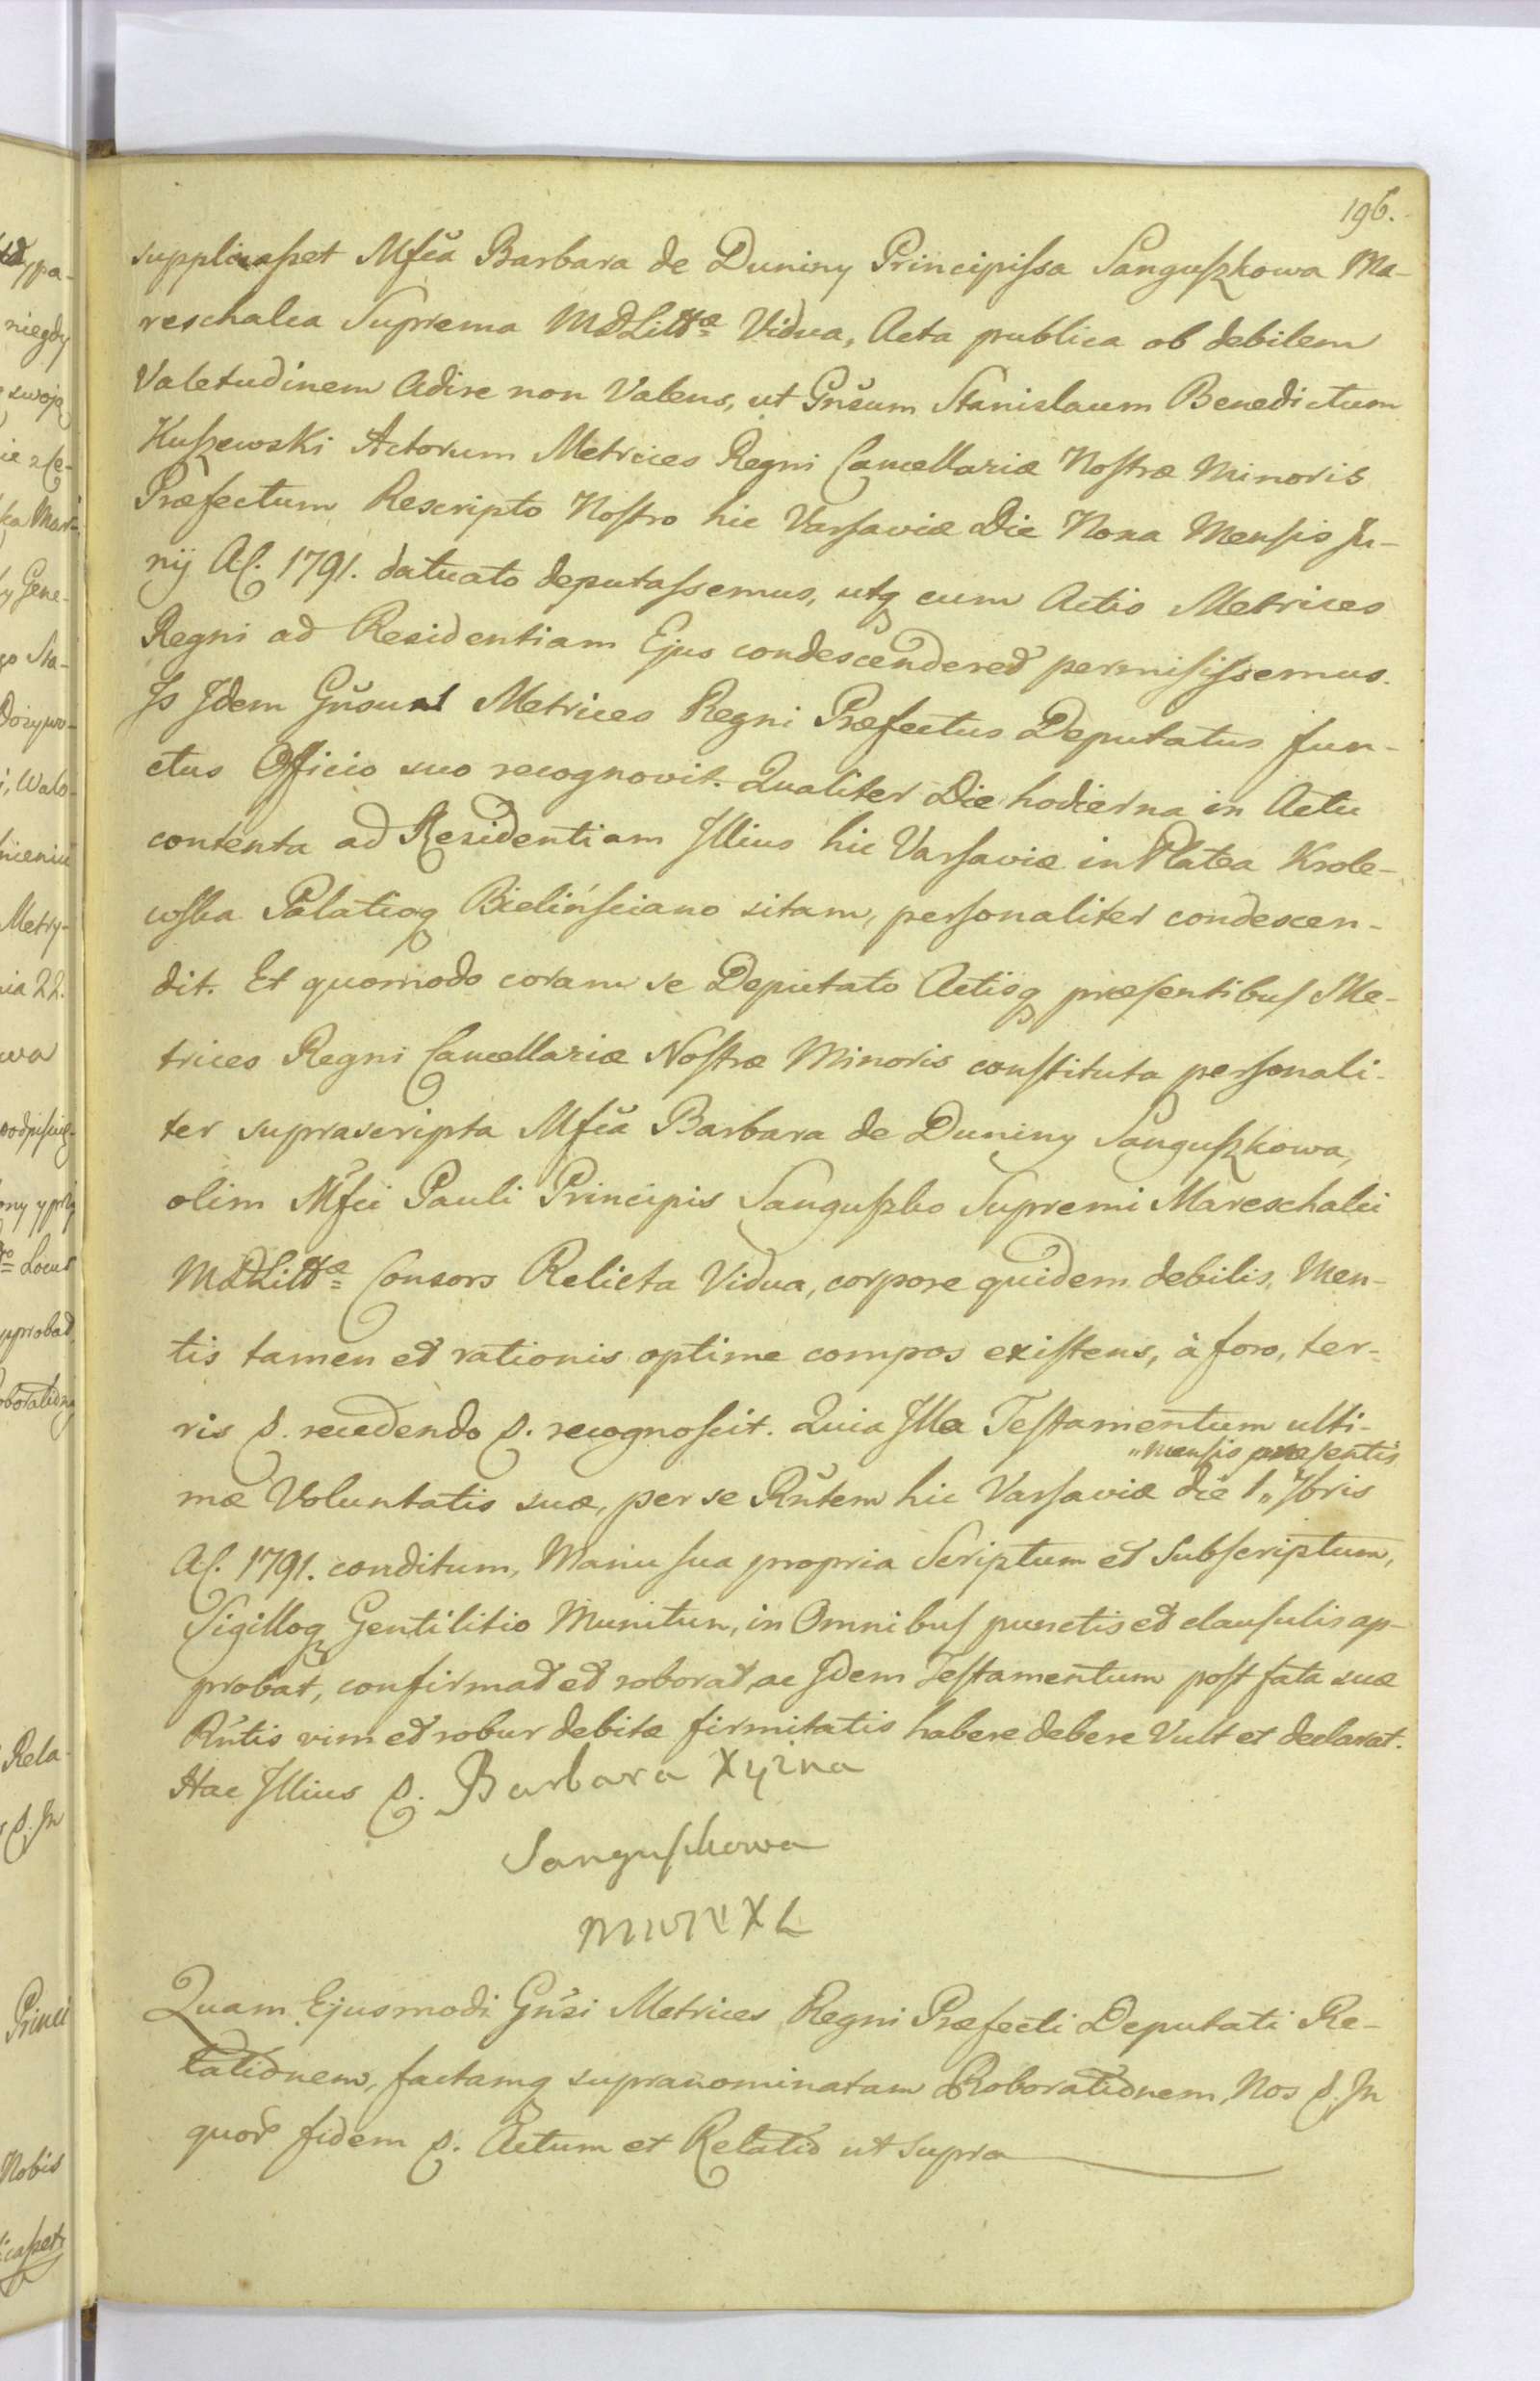 196.
supplicasset Mfca Barbara de Duniny Principissa Sanguszkowa Ma-
reschalca Suprema MDLittæ Vidua, Acta publica ob debilem
Valetudinem Adire non Valens, ut Gnsum Stanislaum Benedictum
Kuszewski Actorum Metrices Regni Cancellariæ Nostræ Minoris
Præfectum Rescripto Nostro hic Varsaviæ Die Nona Mensis Ju-
nij A. 1791. datuato deputassemus, utq cum Actis Metrices
Regni ad Residentiam Ejus condescenderet permisissemus.
Is Idem Gnsus Metrices Regni Præfectus Deputatus fun-
ctus Officio suo recognovit. Qualiter Die hodierna in Actu
contenta ad Residentiam Illius hic Varsaviæ in Platea Krole-
wska Palatioq Bielińsciano sitam, personaliter condescen-
dit. Et quomodo coram se Deputato Actisq præsentibus Me-
trices Regni Cancellariæ Nostræ Minoris constituta personali-
ter suprascripta Mfca Barbara de Duniny Sanguszkowa,
olim Mfci Pauli Principis Sanguszko Supremi Mareschalci
MDLittæ Consors Relicta Vidua, corpore quidem debilis, Men-
tis tamen et rationis optime compos existens, à foro, ter-
ris p. recedendo p. recognoscit. Quia Illa Testamentum ulti-
"mensis præsentis
mæ Voluntatis suæ, per se Rntem hic Varsaviæ die 1" 7bris
A. 1791. conditum, Manu sua propria Scriptum et Subscriptum,
Sigilloq Gentilitio Munitum, in Omnibus punctis et clausulis ap-
probat, confirmat et roborat, ac Idem Testamentum post fata suæ
Rntis vim et robur debitæ firmitatis habere debere Vult et declarat.
Hac Illius p. Barbara Xyżna
Sanguszkowa
MWNXL
Quam Ejusmodi Gnsi Metrices Regni Præfecti Deputati Re-
lationem, factamq supranominatam Roborationem Nos p. In
quor fidem p. Actum et Relatio ut supra